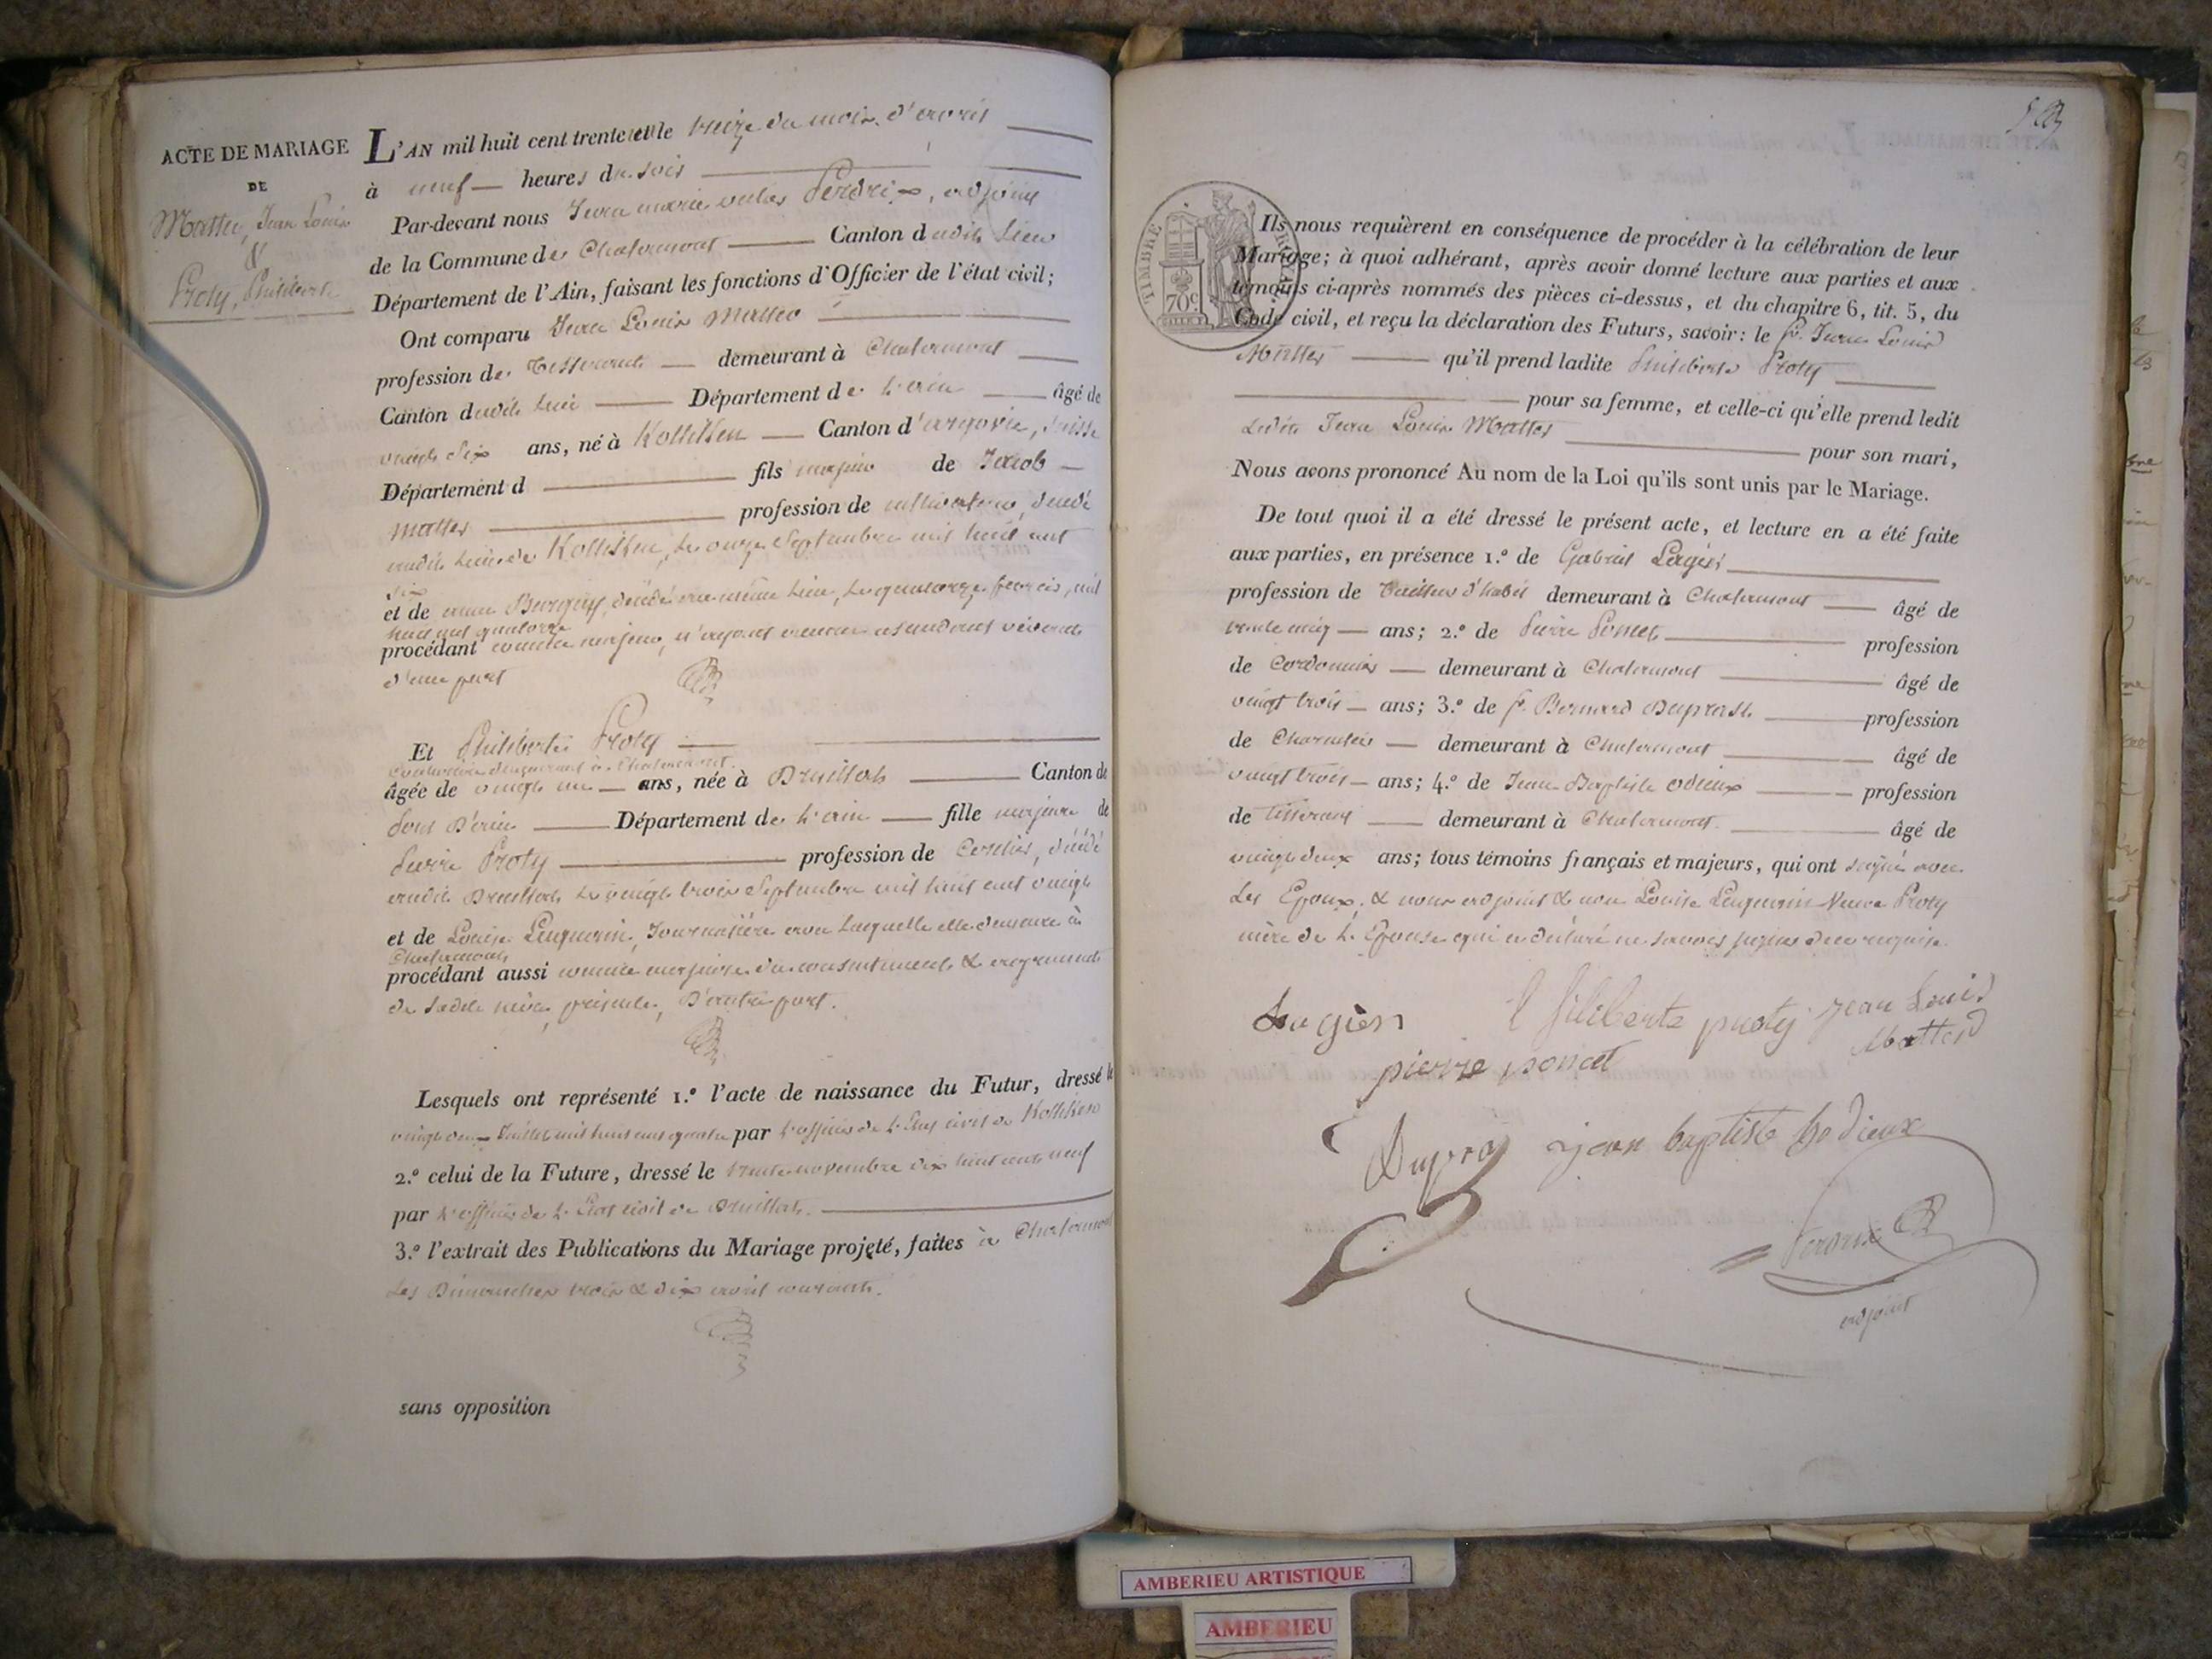 ACTE DE MARIAGE
DE
Matter, Jean Louis
&
Proty, Philiberte
L'AN mil huit cent trente et le treize du mois d'avril
à neuf heures du soir
Par-devant nous Jean marie Perdrix, adjoint
de la Commune de Chalamont Canton dudit Lieu
Département de l'Ain, faisant les fonctions d'Officier de l'état civil;
Ont comparu Jean Louis Matter
profession de Tisserand demeurant à Chalamont
Canton dudit lieu Département de l'ain âgé de
vingt six ans, né à Kolliken Canton d'argovie, Suisse
Département d fils majeur de Jacob
Matter profession de cultivateur, décédé
audit Lieu de Kolliken, le onze Septembre mil huit cent
six
et de anne décédée au même lieu, le quatorze fevrier, mil
huit cent quatorze
procédant comme majeur, n'ayant aucun ascendant vivant
d'une part
Et Philiberte Proty
Couturière demeurant à Chalamont
âgée de vingt un ans, née à Druillat Canton de
Pont D'ain Département de l'ain fille majeure de
Pierre Proty profession de décédé
audit Druillat le vingt trois Septembre mil huit cent vingt
et de Louise Journalière avec laquelle elle demeure à
Chalamont
procédant aussi comme majeure du consentement & agrément
de sadite mère, présente, D'autre part.
Lesquels ont représenté 1.º l'acte de naissance du Futur, dressé le
vingt deux Juillet mil huit cent quatre par l'officier de l'Etat civil de Kolliken
2.º celui de la Future, dressé le trente novembre dix huit cent neuf
par l'officier de l'Etat civil de Druillat.
3.º l'extrait des Publications du Mariage projeté, faites à Chalamont
Les Dimanches trois & dix avril courant.
sans opposition
TIMBRE ROYAL
70c.
Ils nous requièrent en conséquence de procéder à la célébration de leur
Mariage; à quoi adhérant, après avoir donné lecture aux parties et aux
témoins ci-après nommés des pièces ci-dessus, et du chapitre 6, tit. 5, du
Code civil, et reçu la déclaration des Futurs, savoir: le Sr. Jean Louis
Matter qu'il prend ladite Philiberte Proty
pour sa femme, et celle-ci qu'elle prend ledit
Ledit Jean Louis Matter pour son mari,
Nous avons prononcé Au nom de la Loi qu'ils sont unis par le Mariage.
De tout quoi il a été dressé le présent acte, et lecture en a été faite
aux parties, en présence 1.º de Gabriel Lagier
profession de Tailleur d'habit demeurant à Chalamont âgé de
trente cinq ans; 2.º de Pierre Poncet profession
de Cordonnier demeurant à Chalamont âgé de
vingt trois ans; 3.º de Sr. Bernard profession
de Charpentier demeurant à Chalamont âgé de
vingt trois ans; 4.º de Jean Baptiste Odieux profession
de tisserand demeurant à Chalamont âgé de
vingt deux ans; tous témoins français et majeurs, qui ont signé avec
Les Epoux, & nous adjoint & non Louise Veuve Proty
mère de L'Epouse qui a déclaré ne savoir signer de ce requise.
Lagier
filiberte proty jean Louis
Matter
pierre poncet
Dupra jean baptiste hodieux
Perdrix
adjoint
AMBERIEU ARTISTIQUE
AMBERIEU